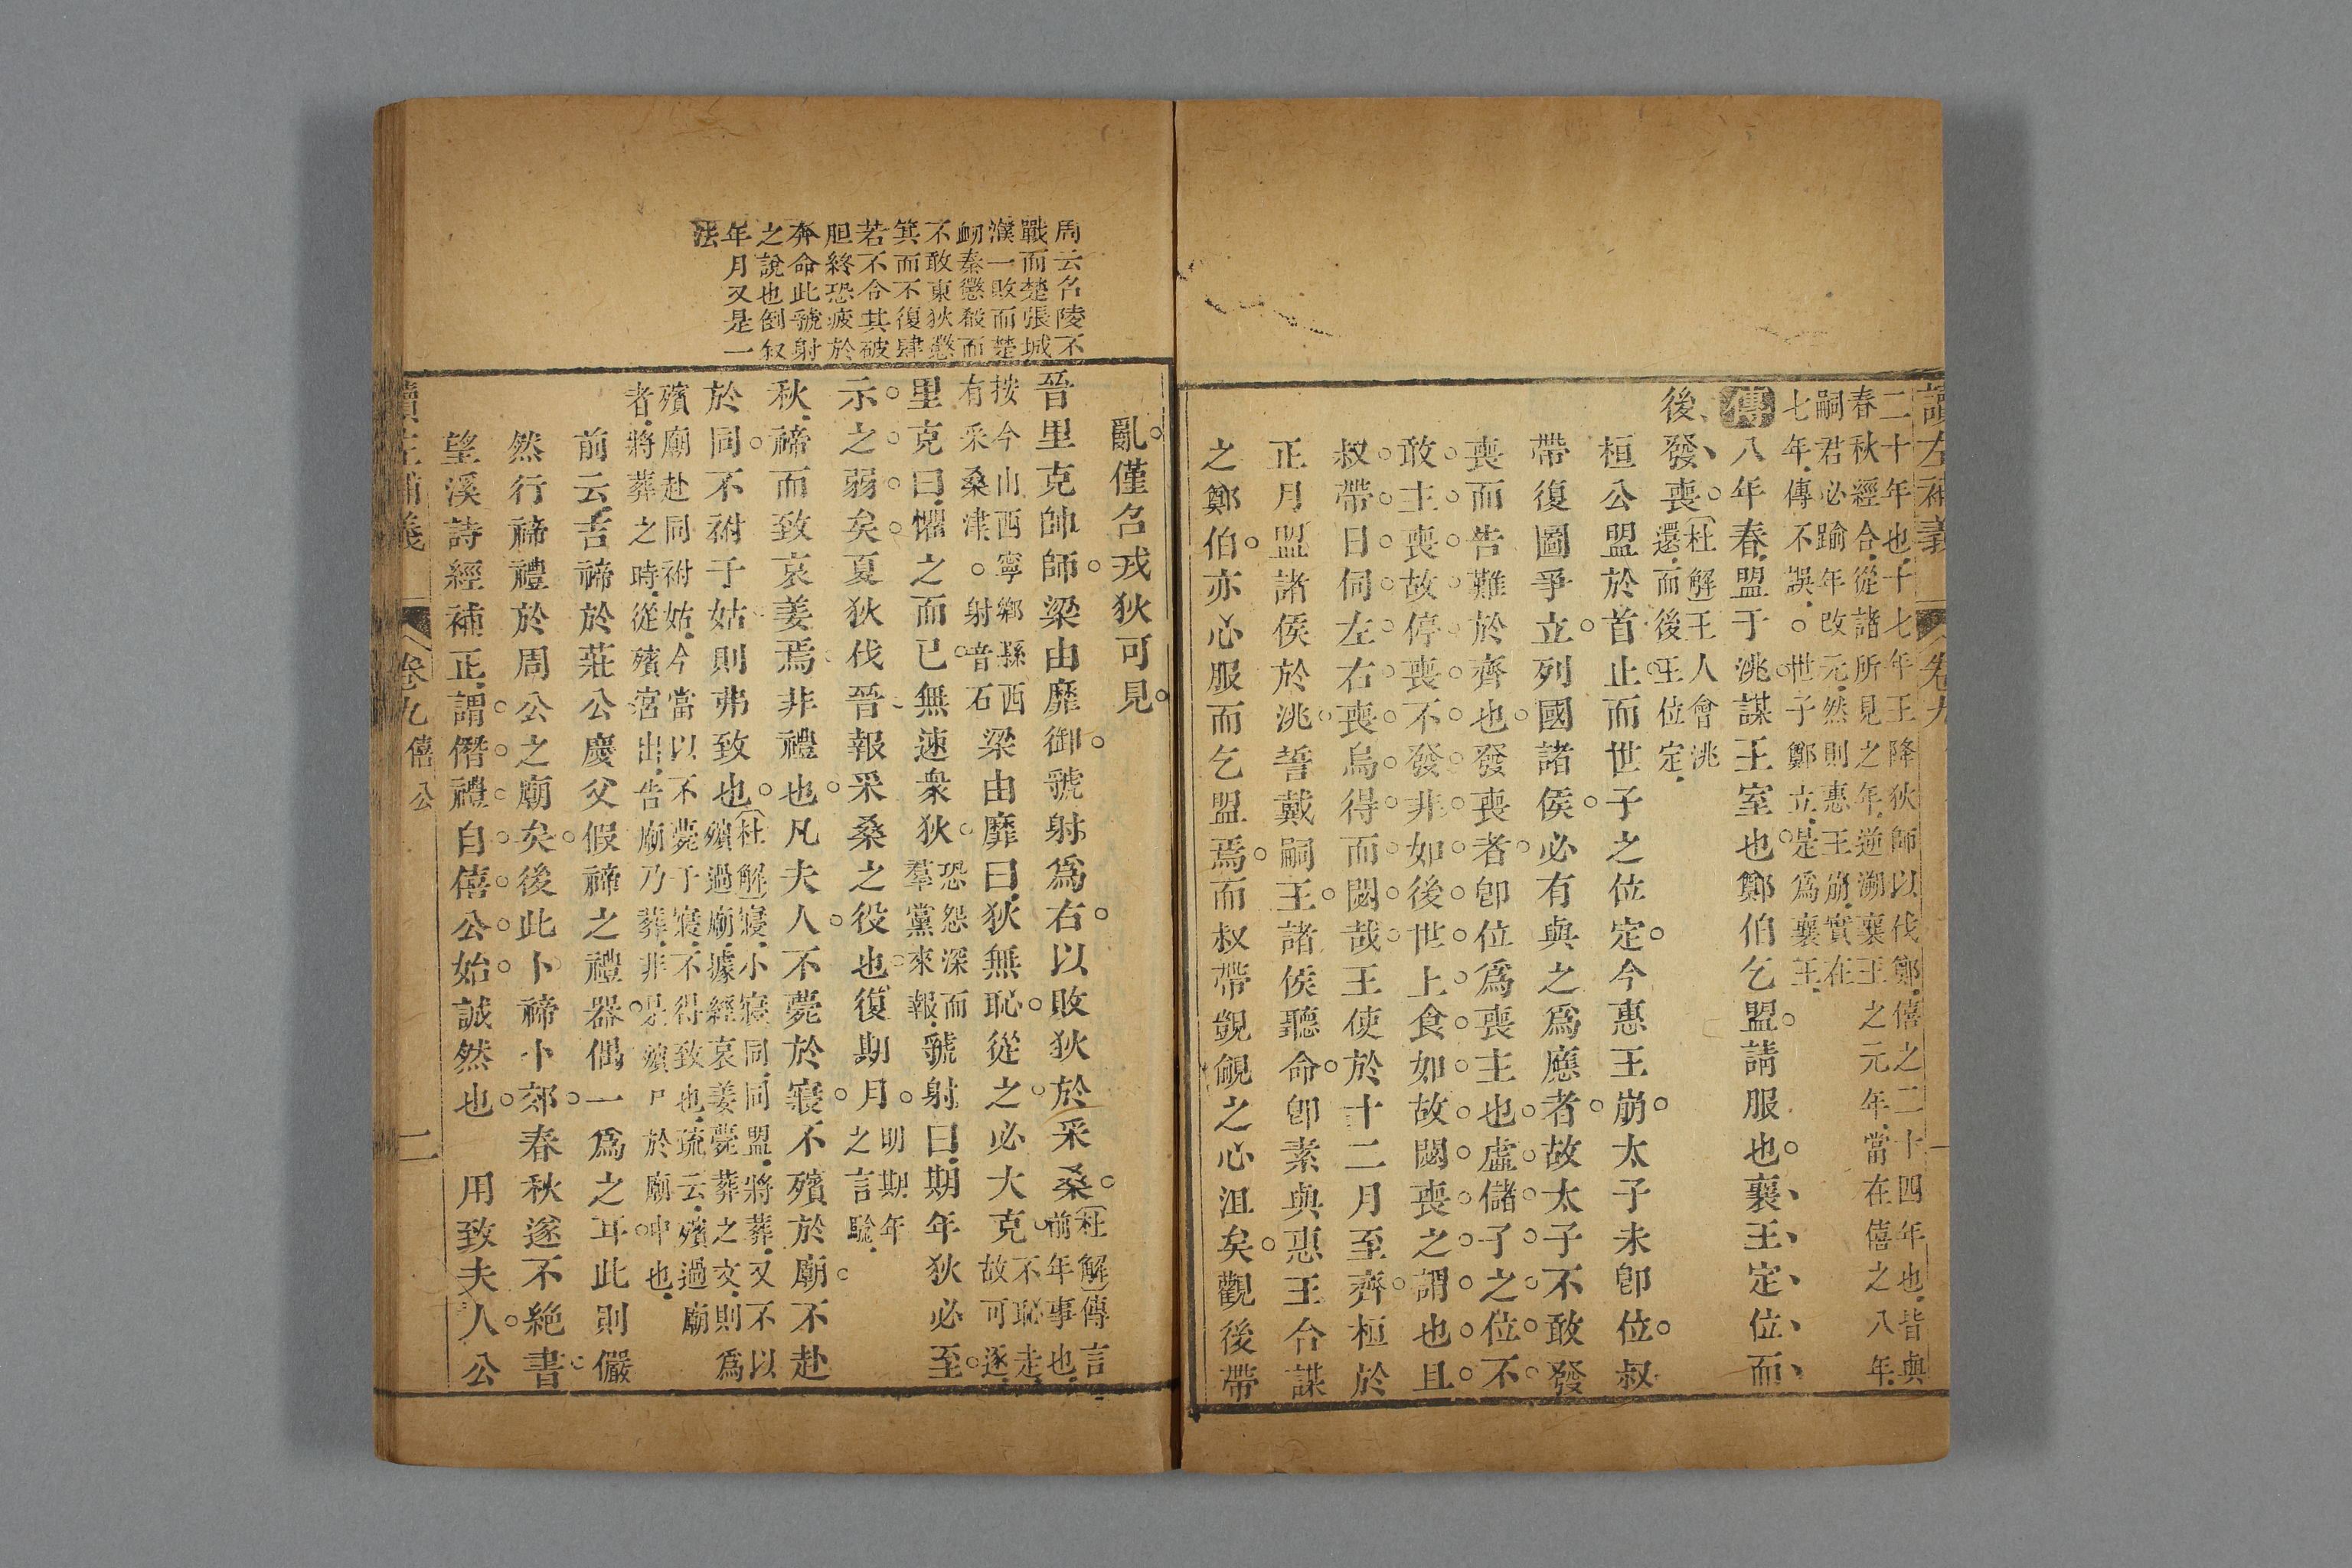 讀左補義
卷九
二十年也十七年王降狄師以伐鄭僖之二十四年也皆與
春秋經合從諸所見之年逆溯襄王之元年當在僖之八年
嗣君必踰年改元然則惠王崩實在
七年傳不誤○世子鄭立是爲襄王
傳八年春盟于洮謀王室也鄭伯乞盟請服也襄王定位而
後發喪杜解王人會洮
還而後王位定
桓公盟於首止而世子之位定今惠王崩太子未卽位叔
帶復圖爭立列國諸侯必有與之爲應者故太子不敢發
喪而告難於齊也發喪者卽位爲喪主也虛儲子之位不
敢主喪故停喪不發非如後世上食如故閟喪之謂也且
叔帶日伺左右喪烏得而閟哉王使於十二月至齊桓於
正月盟諸侯於洮誓戴嗣王諸侯聽命卽素與惠王合謀
之鄭伯亦必服而乞盟焉而叔帶覬覦之心沮矣觀後帶
亂僅召戎狄可見
周云名陵不
戰而楚張城
濮一敗而楚
衂秦懲殽而
不敢東狄懲
箕而不復肆
若不令其破
胆終恐疲於
奔命此虢射
之說也倒叙
年月又是一
法
晉里克帥師梁由靡御虢射爲右以敗狄於采桑杜解傳言
前年事也
按今山西寧鄉縣西
有采桑津○射音石
梁由靡曰狄無恥從之必大克不恥走
故可逐
里克曰懼之而已無速衆狄恐怨深而
羣黨來報
虢射曰期年狄必至
示之弱矣夏狄伐晉報采桑之役也復期月明期年
之言驗
秋禘而致哀姜焉非禮也凡夫人不薨於寢不殯於廟不赴
於同不祔于姑則弗致也杜解寢小寢同同盟將葬又不以
殯過廟據經哀姜薨葬之文則爲
殯廟赴同祔姑今當以不薨于寢不得致也疏云殯過廟
者將葬之時從殯宮出告廟乃葬非是殯尸於廟中也
前云吉禘於莊公慶父假禘之禮器偶一爲之耳此則儼
然行禘禮於周公之廟矣後此卜禘卜郊春秋遂不絶書
望溪詩經補正謂僭禮自僖公始誠然也　用致夫人公
讀左補義
卷九
僖公
二